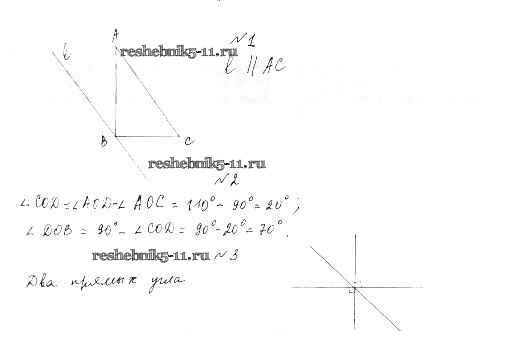 A
reshebnik5-11.ru
№1
b
l || AC
B
C
reshebnik5-11.ru
№2
∠COD = ∠AOD - ∠AOC = 110° - 90° = 20°;
∠DOB = 90° - ∠COD = 90° - 20° = 70°.
reshebnik5-11.ru №3
Два прямых угла